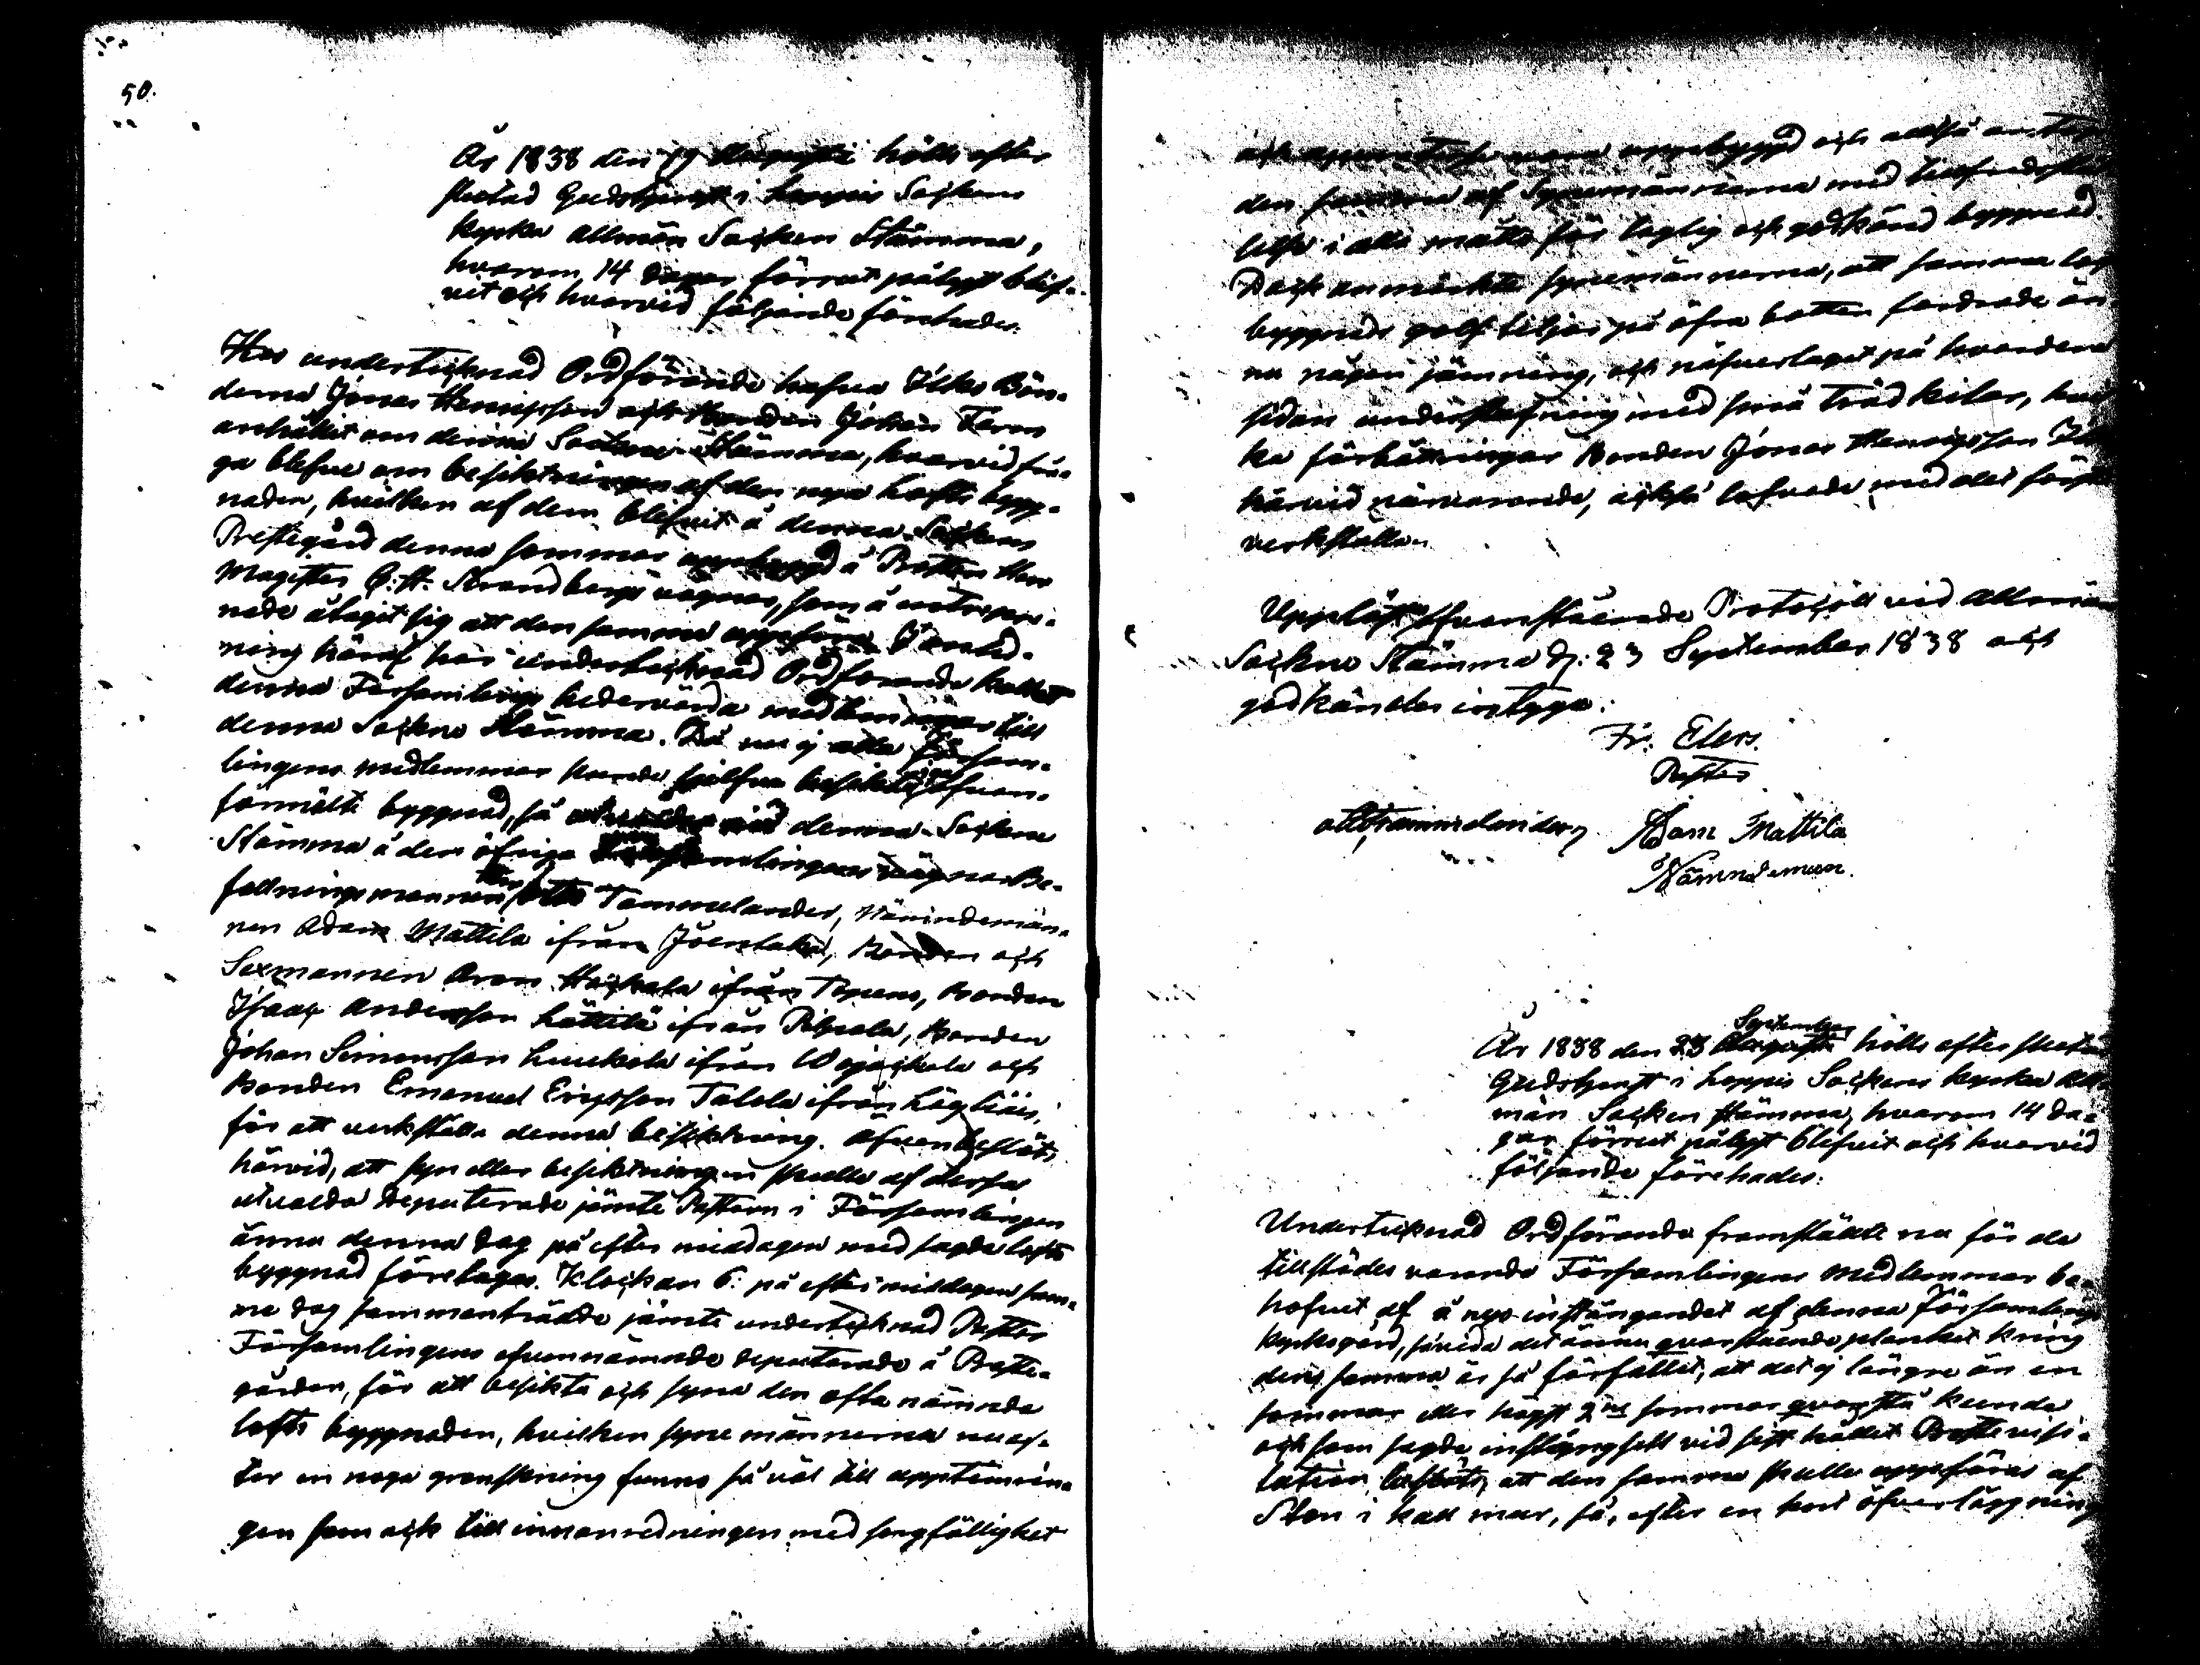 50.
År 1838 den 19 Augusti hölls efter
slutad Gudstjenst i Loppis Sockens
kyrka allmän Socken Stämma,
hvarom 14 dagar förrut pålyst blif-
vit och hvarvid följande förehades.
Hos undertecknad Ordförande hafva Bön-
derna Jonas Henricsson och Bonden Johan
anhållit om denna Sockne-Stämma, hvarvid frå-
ga blefve om besiktningen af den nya lofts bygg-
naden, hvilken af dem blefvit å denna Sockens
Prestegård denna sommar uppbyggd å Pastorn Herr
Magister Strandbergs vägnar, som å entrepre-
nade åtagit sig att den samma uppföra. I anled-
ning häraf har undertecknad Ordförande kallat
denna Församlings hedervärda medlemmar till
denna Sockne Stämma. Då nu ej alla Försam-
lingens medlemmar kunde sjelfva besiktiga ofvan-
förmälte byggnad, så utvaldes vid denna Sockne
Stämma å den öfriga Församlingens vägnar Be-
fallningsmannen Herr Otto Tammelander, Nämndeman-
nen Adam Mattila ifrån Joentaka, Bonden och
Sexmannen Aron Heikkala ifrån Topeno, Bonden
Isaac Andersson Lättilä ifrån Pilpala, Bonden
Johan Simonsson Luukola ifrån Wojackala och
Bonden Emanuel Ericsson Talola ifrån Läyliäis,
för att verkställa denna besiktning. Äfven beslöts
härvid, att syn eller besiktningen skulle af dessa
utvalda Deputerade jämte Pastorn i Församlingen
ännu denna dag på efter middagen med sagde lofts
byggnad företagas. Klockan 6: på efter middagen sam-
me dag sammanträdde jämte undertecknad Pastor
Församlingens ofvannämnde deputerade å Preste-
gården, för att besikta och syna den ofta nämnde
lofts byggnaden, hvilken syne männerna nu ef-
ter en noga granskning funno så väl till upptimrin-
gen som ock till innanredningen med sorgfällighet
och vara uppebyggd och alltså
den samma af Synemännerna med
i alla måtto för laglig och godkänd byggnad.
Dock anmärkte synemännerna, att samma
byggnads golf tiljor på öfra botten fordrade än-
nu någon jämning, och näfverlaget på hvardera
sidan understafning med små träd kilar,
ka förbättringar Bonden Jonas Henricsson
härvid närvarande, också lofvade med det första
verkställa.
Uppläst ofvanstående Protocoll vid allmän
Sockne Stämma d. 23 September 1838 och
godkändes intyga:
Fr: Elers.
Pastor
Otto Tammelander, Adam Mattila
Nämndeman.
År 1838 den 23 September hölls efter slutad
Gudstjenst i Loppis Sockens kyrka all-
män Socken Stämma, hvarom 14 da-
gar förrut pålyst blifvit och hvarvid
följande förehades.
Undertecknad Ordförande framställde nu för de
tillstädes varande Församlingens Medlemmar be-
hofvet af å nyo instängandet af denna Församlings
kyrkogård, såvida det ännu qvarstående planket kring
den samma är så förfallet, att det ej längre än en
sommar eller högst 2ne somrar qvarstå kunde
och som sagde instängsel vid sist hållet Prostevisi-
tation beslöts, att den samma skulle uppföras af
Sten i kall mur, så, efter en kort öfverläggning